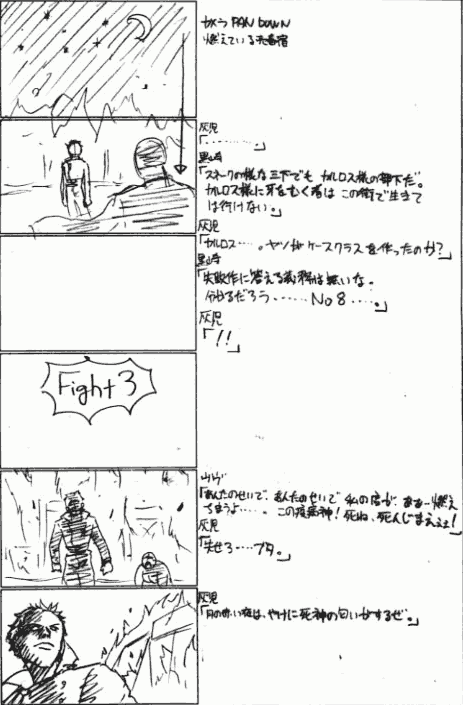 カメラ PAN DOWN
燃えている
灰児
「………。」
「スネークの様な三下でも カルロス様の部下だ。
カルロス様に牙をむく者は この街で生きて
は行けない。」
灰児
「カルロス…。ヤツがケースクラスを作ったのか?」
「失敗作に答える義務は無いな。
分かるだろう……No8…。」
灰児
「!!」
Fight 3
「あんたのせいで、あんたのせいで 私の店が、ああー燃え
ちまうよ…。この疫病神! 死ね、死んじまえぇぇ!」
灰児
「失せろ…ブタ。」
灰児
「月の赤い夜は、やけに死神の匂いがするぜ。」